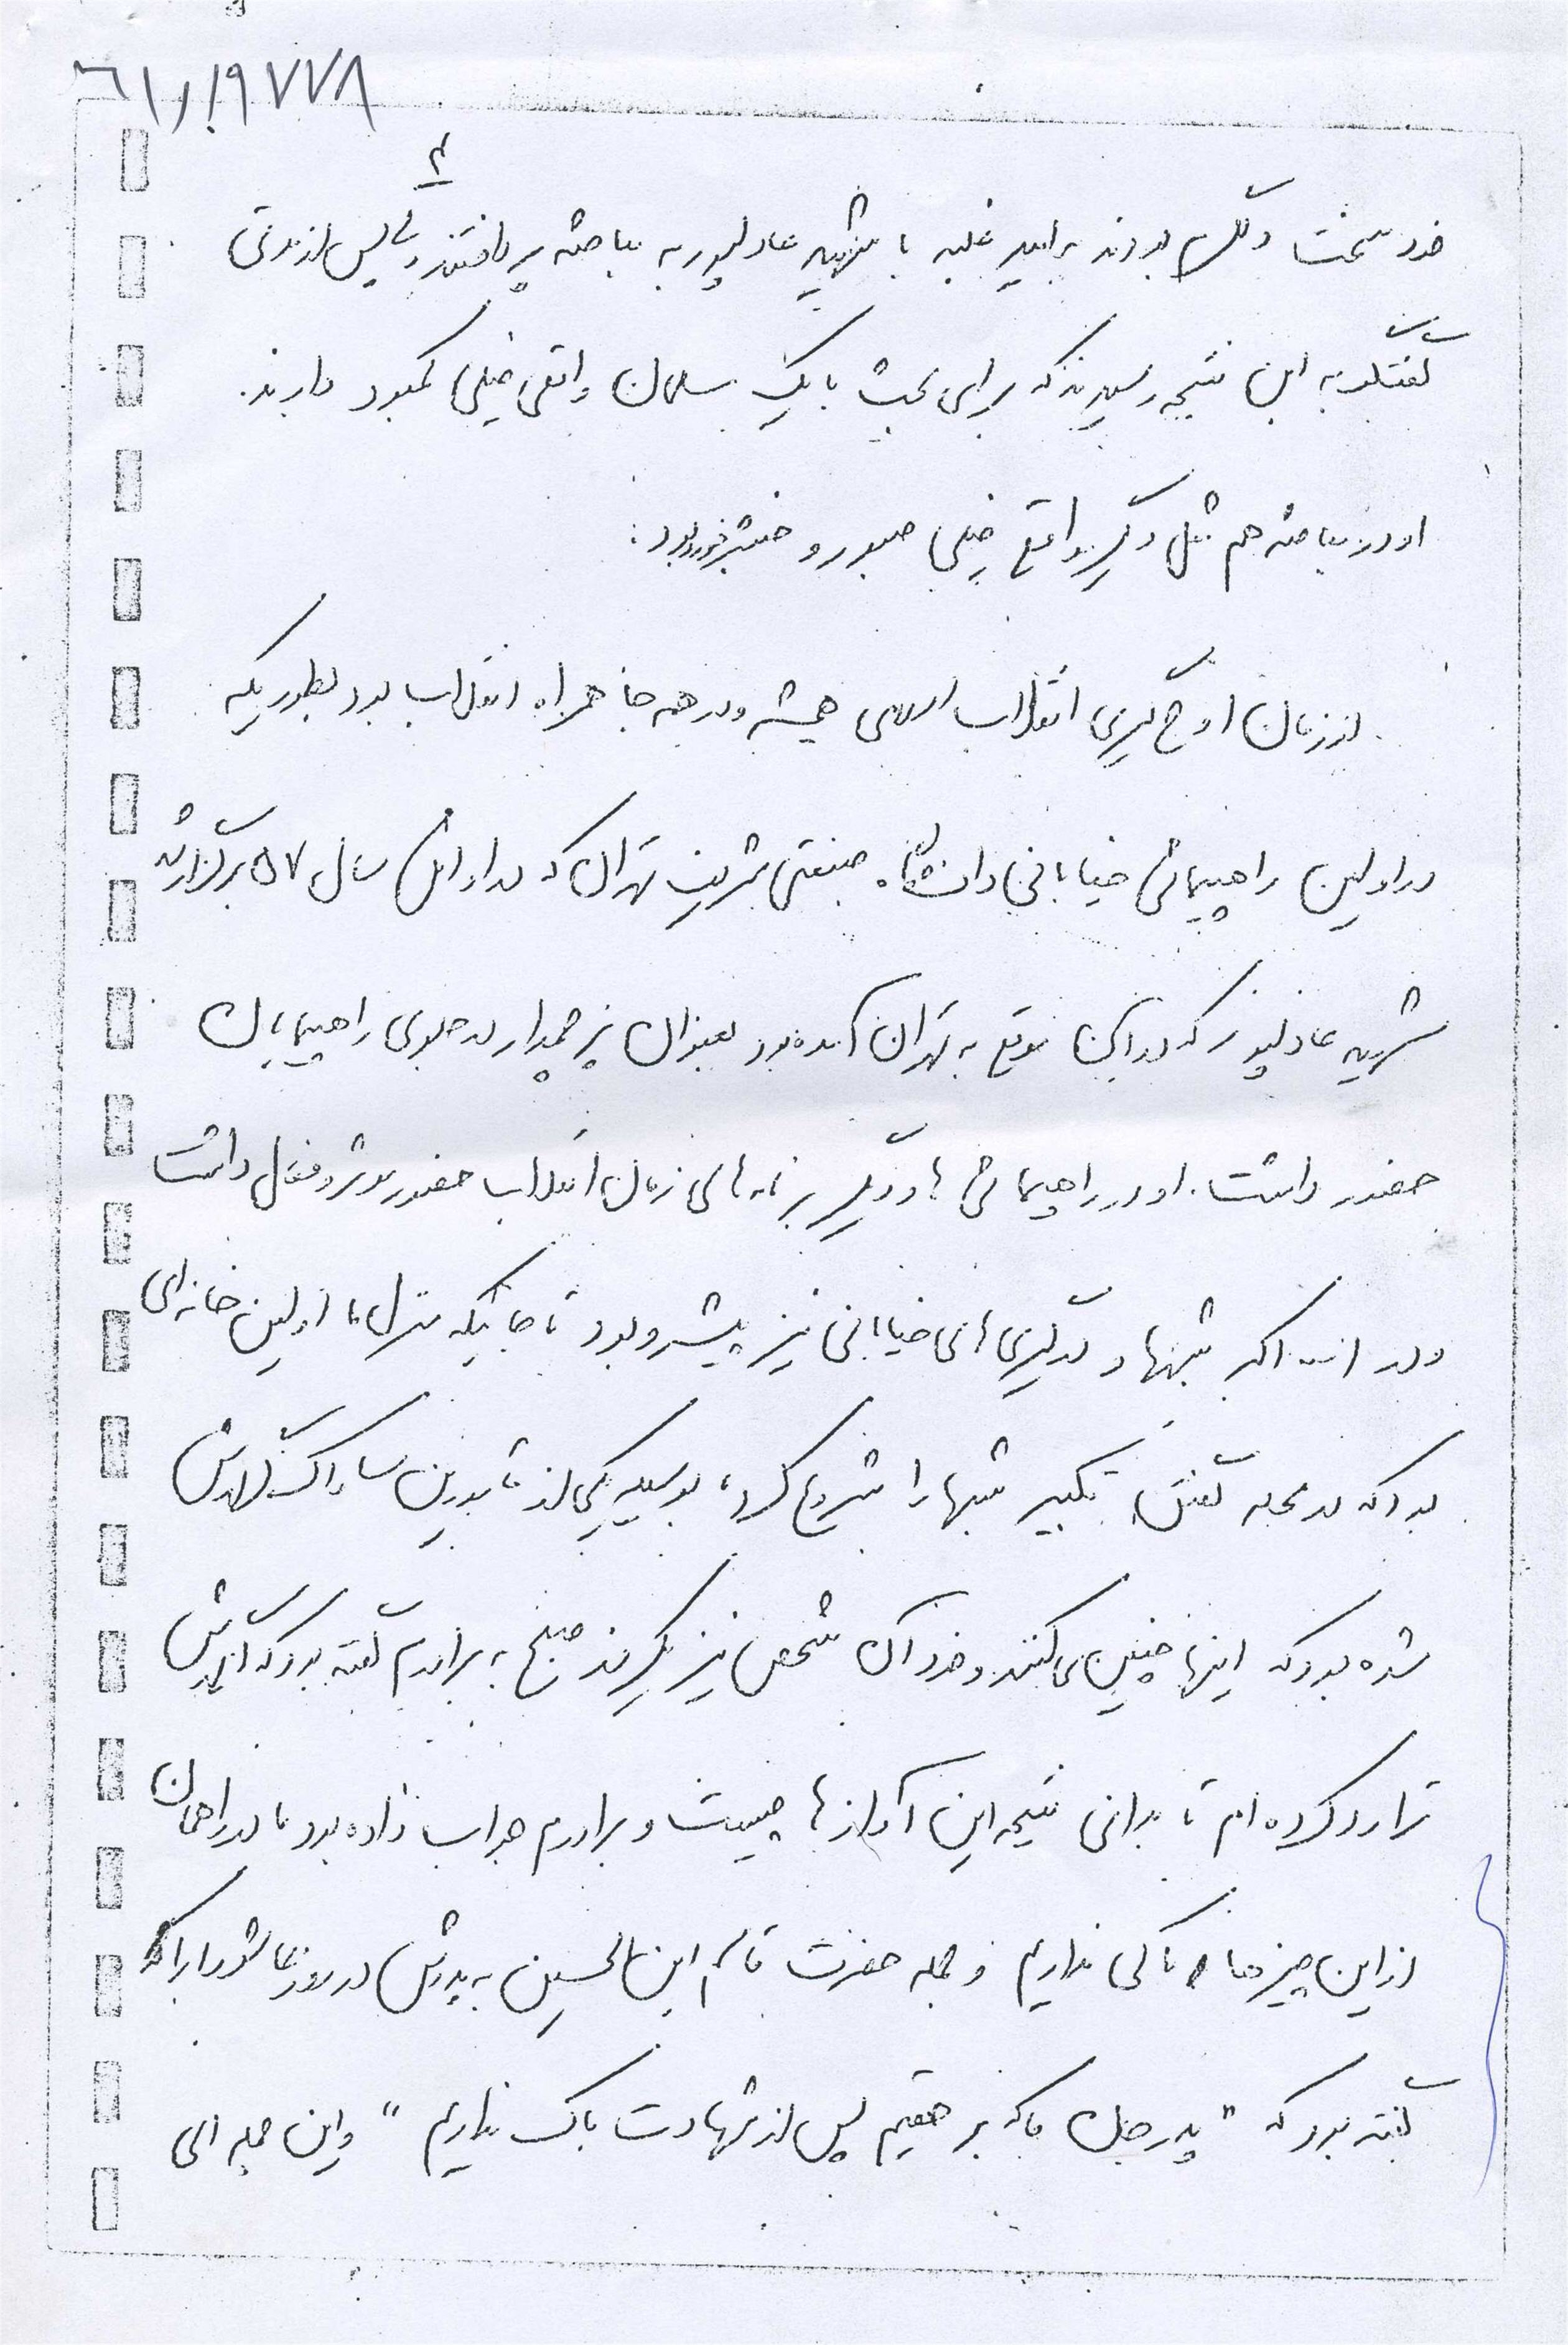 ۶۱/۱۹۷۷۸
۴
خود سخت دگم بودند برامید غلبه با شهید عادلپور به مباحثه پرداختند ولی پس از مدتی
گفتگو به این نتیجه رسیدند که برای بحث با یک مسلمان واقعی خیلی کمبود دارند.
او در مباحثه هم مثل دیگر مواقع خیلی صبور و خوشبرخورد بود:
از زمان اوج گیری انقلاب اسلامی همیشه و در همه جا همراه انقلاب بود بطوریکه
در اولین راهپیمائی خیابانی دانشگاه صنعتی شریف تهران که در اوایل سال ۵۷ برگزار شد
شهید عادلپور که در آن موقع به تهران آمده بود بعنوان پرچمدار در جلوی راهپیمایان
حضور داشت. او در راهپیمائی ها و دیگر برنامه های زمان انقلاب حضور موثر و فعال داشت
و در الله اکبر شبها و درگیری های خیابانی نیز پیشرو بود تا جائیکه منزل ما اولین خانه ای
بود که در محله گفتن تکبیر شبها را شروع کرد، بوسیله یکی از مامورین ساواک گزارش
شده بود که اینها چنین می کنند و خود آن شخص نیز یکروز صبح به برادرم گفته بود که گزارش
ترا رد کرده ام تا بدانی نتیجه این آوازها چیست و برادرم جواب داده بود ما در راهمان
از این چیزها باکی نداریم و جمله حضرت قاسم ابن الحسین به پدرش در روز عاشورا را که
گفته بود که " پدر جان ما که بر حقیم پس از شهادت باک نداریم " و این جمله ای